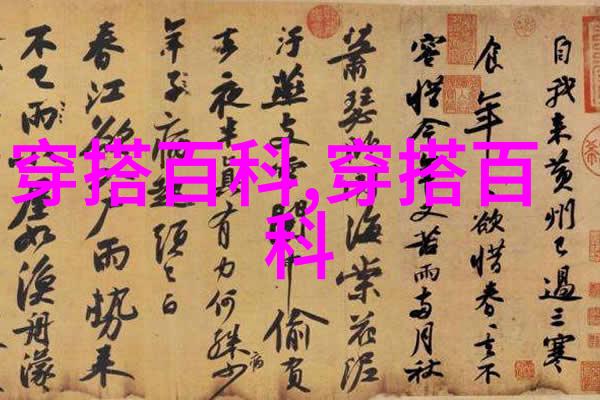 穿搭百科,穿搭百
科
自我来黄州已過三寒
食年〻欲惜春〻去不
容惜今年又苦雨兩月秋
蕭瑟卧聞海棠花泥
汙燕支雪闇中偷負
去夜半真有力何殊少
病
年子病起頭已白
春江欲入户雨勢来
不已雨小屋如漁舟濛